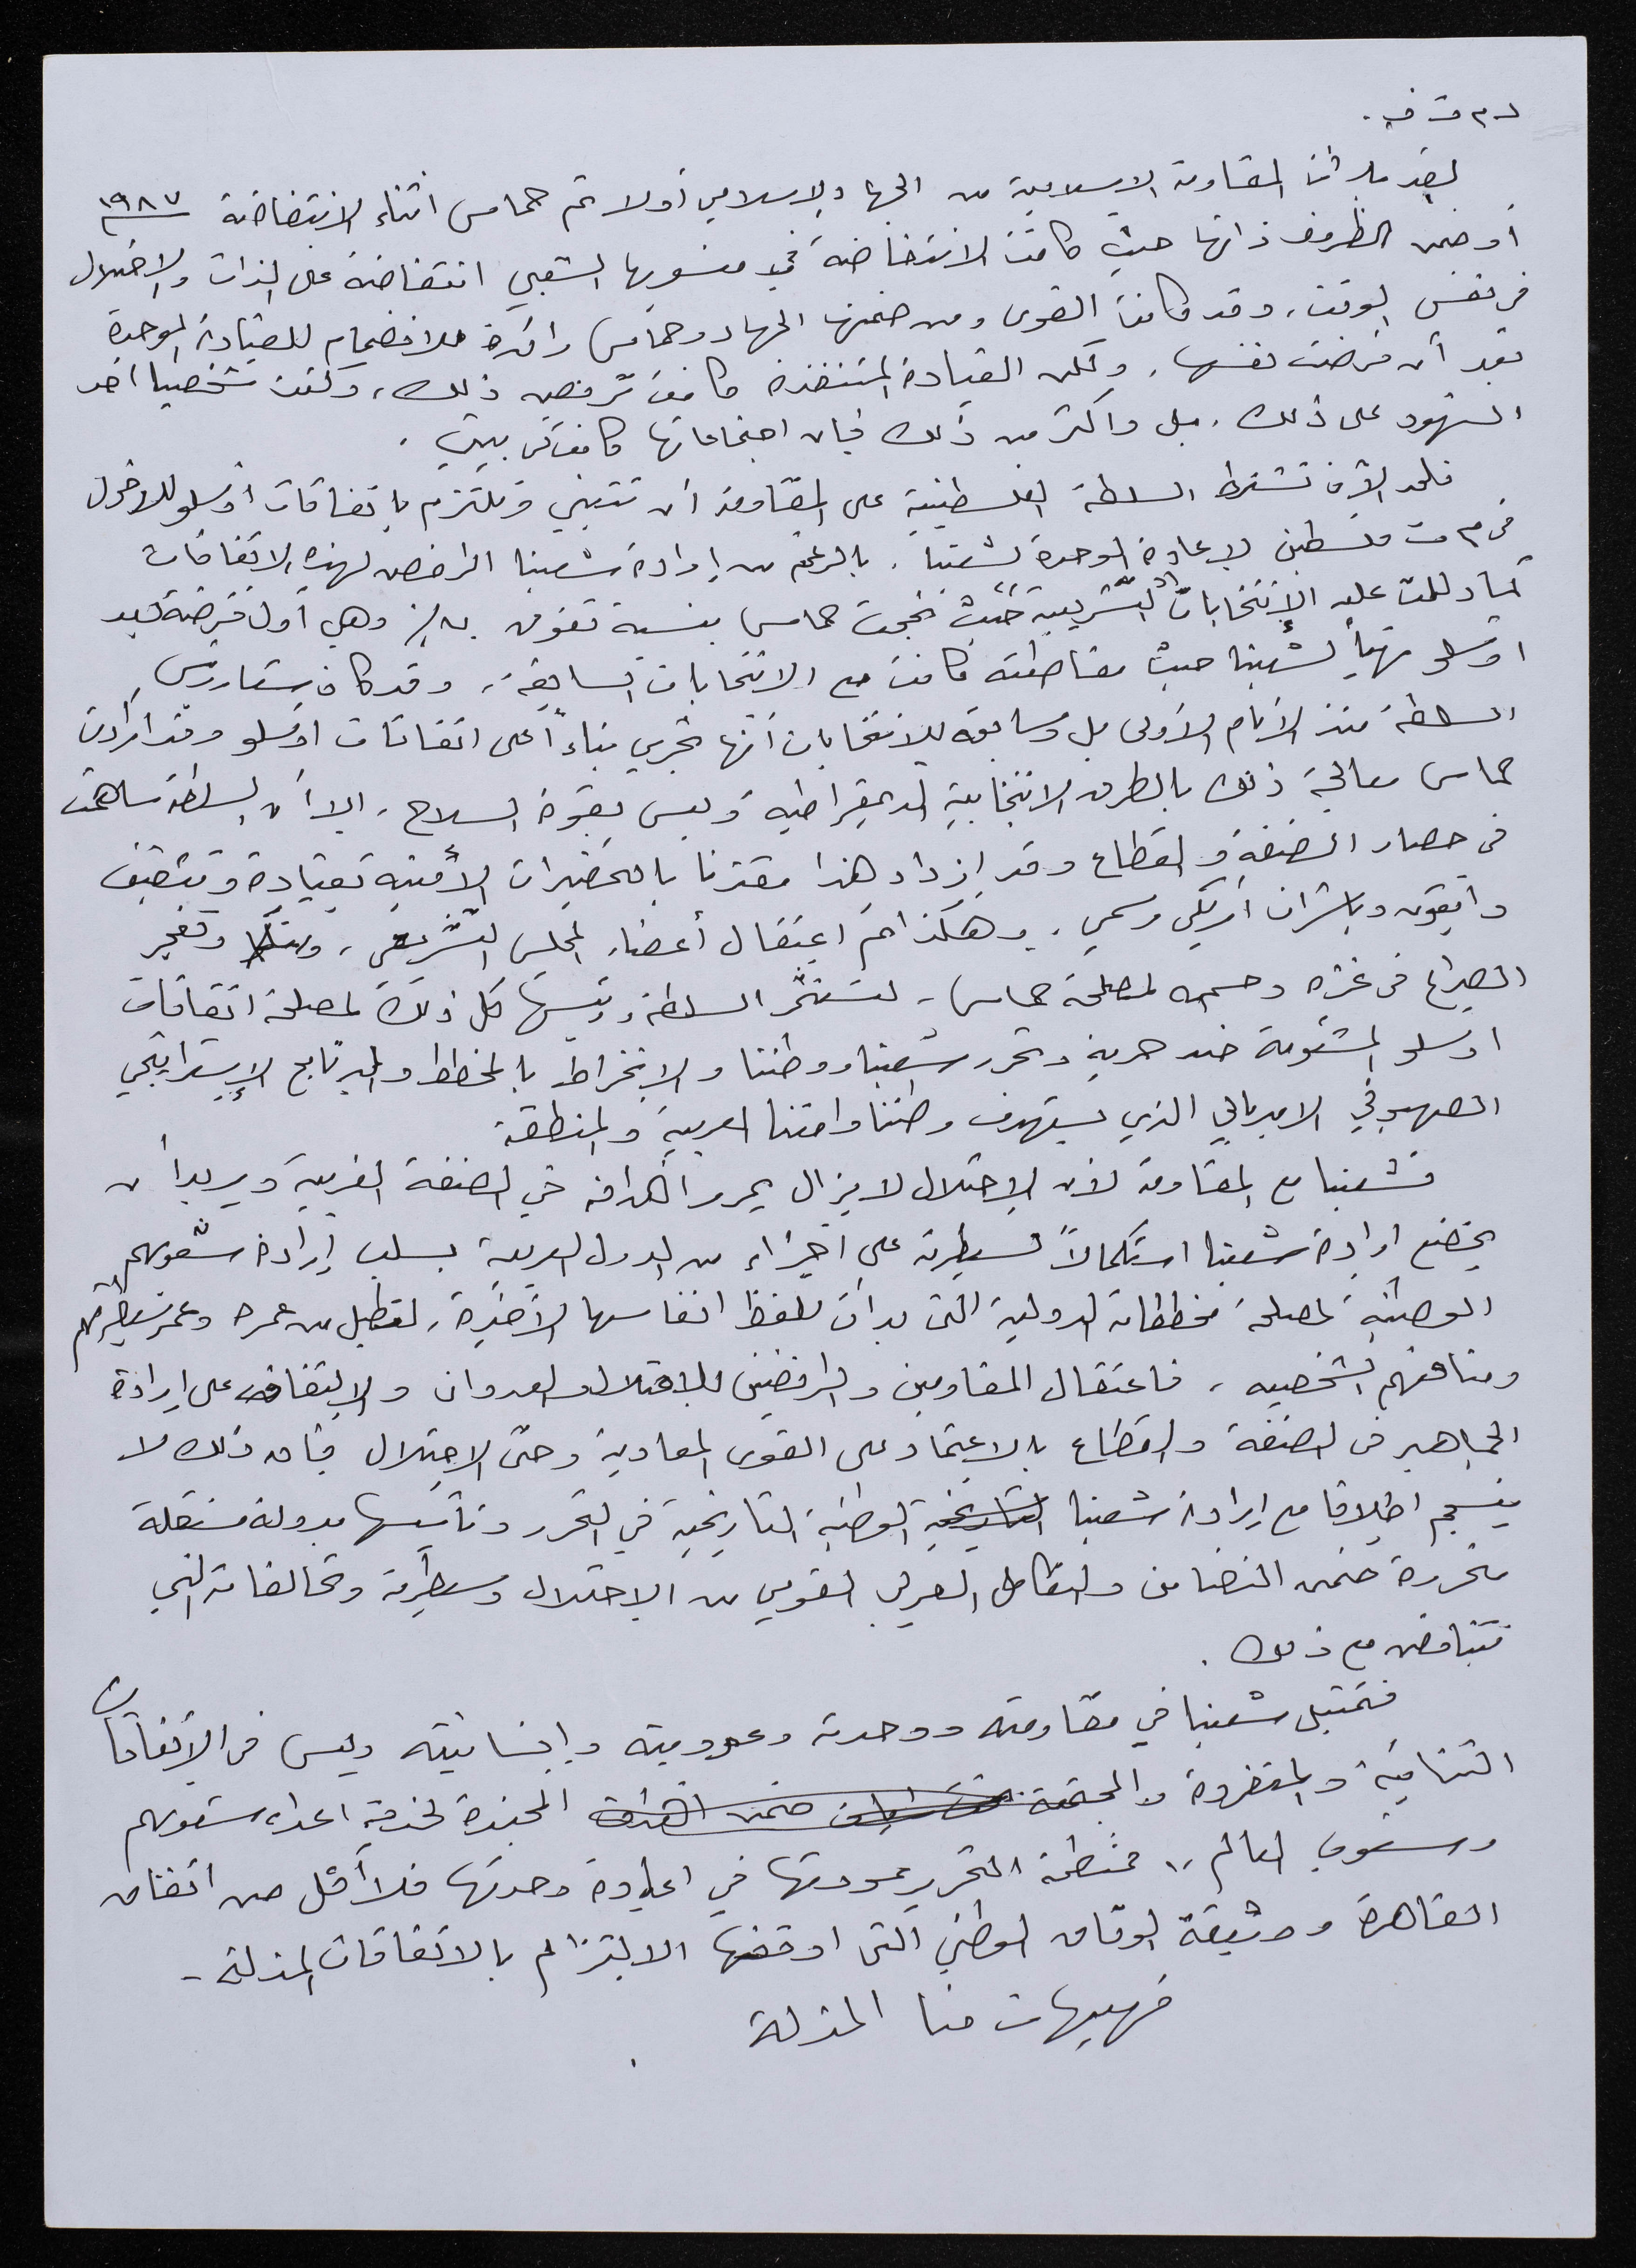 د م ت ف.
لقد بدأت المقاومة الإسلامية من الجهاد الإسلامي أولا ثم حماس اثناء الانتفاضة ١٩٨٧
أو ضمن الظروف ذاتها حيث كانت الانتفاضة في منسوبها الشعبي انتفاضة على الذات والاحتلال
في نفس الوقت، وقد كانت القوى ومن ضمنها الجهاد وحماس للانضمام للقيادة الموحدة
بعد أن فرضت نفسها، ولكن القيادة المتنفذة كانت ترفض ذلك، وكنت شخصيا احد
الشهود على ذلك، بل واكثر من ذلك فإن اجتماعاتها كانت في بيتي.
الآن تشترط السلطة الفلسطينية على المقاومة أن تتبنى وتلتزم باتفاقات أوسلو للدخول
في م ت فلسطين لإعادة الوحدة لشعبنا، بالرغم من إرادة شعبنا الرافض لهذه الاتفاقات
كما دللت عليه الإنتخابات التشريعية حيث نجحت حماس بنسبة تفوق وهي أول فرصة بعد
اوسلو تهيأ لشعبنا حيث مقاطعته كانت مع الانتخابات السابقة، وقد كان رئيس
السلطة منذ الأيام الأولى بل وسابقة للانتخابات أنها تجري بناءً على اتفاقات اوسلو وقد أرادت
حماس معالجة ذلك بالطرق الانتخابية الديمقراطية وليس بقوة السلاح، الا أن السلطة ساهمت
في حصار الضفة والقطاع وقد إزداد هذا مقترنا بالتحضيرات الأمنية بقيادة وتثقيف
دايتون وباشراف أمريكي رسمي، وهكذا تم اعتقال أعضاء المجلس التشريعي، وتفجير
الصراع في غزة وحسمه لمصلحة حماس، لتستثمر السلطة ورئيسها كل ذلك لمصلحة اتفاقات
اوسلو المشئومة ضد حرية وتحرر شعبنا ووطننا والانخراط بالمخطط والبرنامج الإستراتيجي
الصهيوني الامبريالي الذي يستهدف وطننا وامتنا العربية والمنطقة.
فشعبنا مع المقاومة لأن الإحتلال لا يزال يمرر أهدافه في الضفة الغربية ويريد أن
يخضع ارادة شعبنا استكمالاً لسيطرته على أجزاء من الدول العربية بسلب إرادة شعوبهم
الوطنية لمصلحة مخططاته الدولية التي بدأت تلفظ انفاسها الأخيرة، لتطيل من عمره وعمر سيطرتهم
ومنافعهم الشخصية، فاعتقال المقاومين والرافضين للاحتلال والعدوان والإلتفاف على إرادة
الجماهير في الضفة والقطاع بالاعتماد على القوى المعادية وحتى الاحتلال فإن ذلك لا
ينسجم اطلاقا مع إرادة شعبنا التاريخية الوطنية التاريخية في التحرر وتأسيسها بدولة مستقلة
متحررة ضمن التضامن والتكامل العربي القومي من الإحتلال وسيطرته وتحالفاته التي
تتناقض مع ذلك.
فتمثيل شعبنا في مقاومته ووحدته وعروبيته وإنسانيته وليس في الإتفاقات
الثنائية والمنفردة والمجتمعة ضمن اهدافه المجندة لخدمة اعداء شعوبهم
وشعوب العالم،، فمنظمة التحرير عمودها في اعادة وحدتها فلا أقل من اتفاق
القاهرة ووثيقة الوفاق الوطني التي اوقفها الالتزام بالاتفاقات المذلة -
فهيهات منا المذلة.